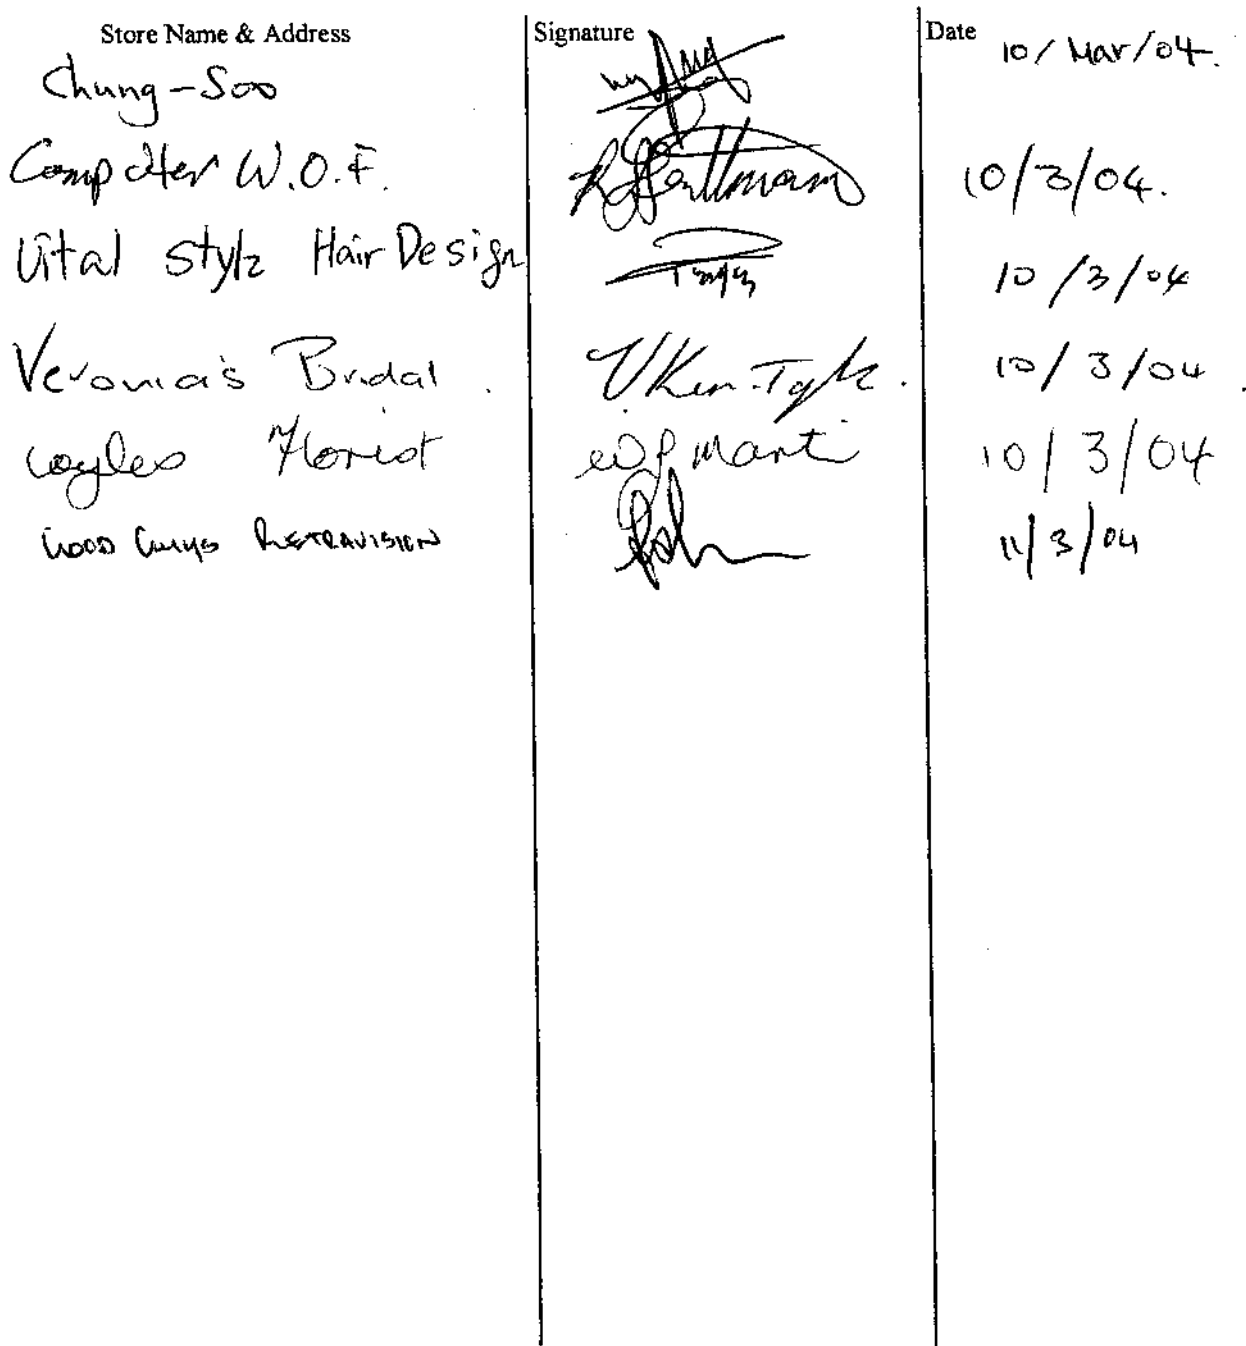 Store Name & Address Signature Date
Chung-Soo 10/Mar/04.
Computer W.O.F. 10/3/04.
Vital Style Hair Design 10/3/04
Veronica's Bridal. 10/3/04.
Coyles Florist 10/3/04
Good Guys Retravision 11/3/04